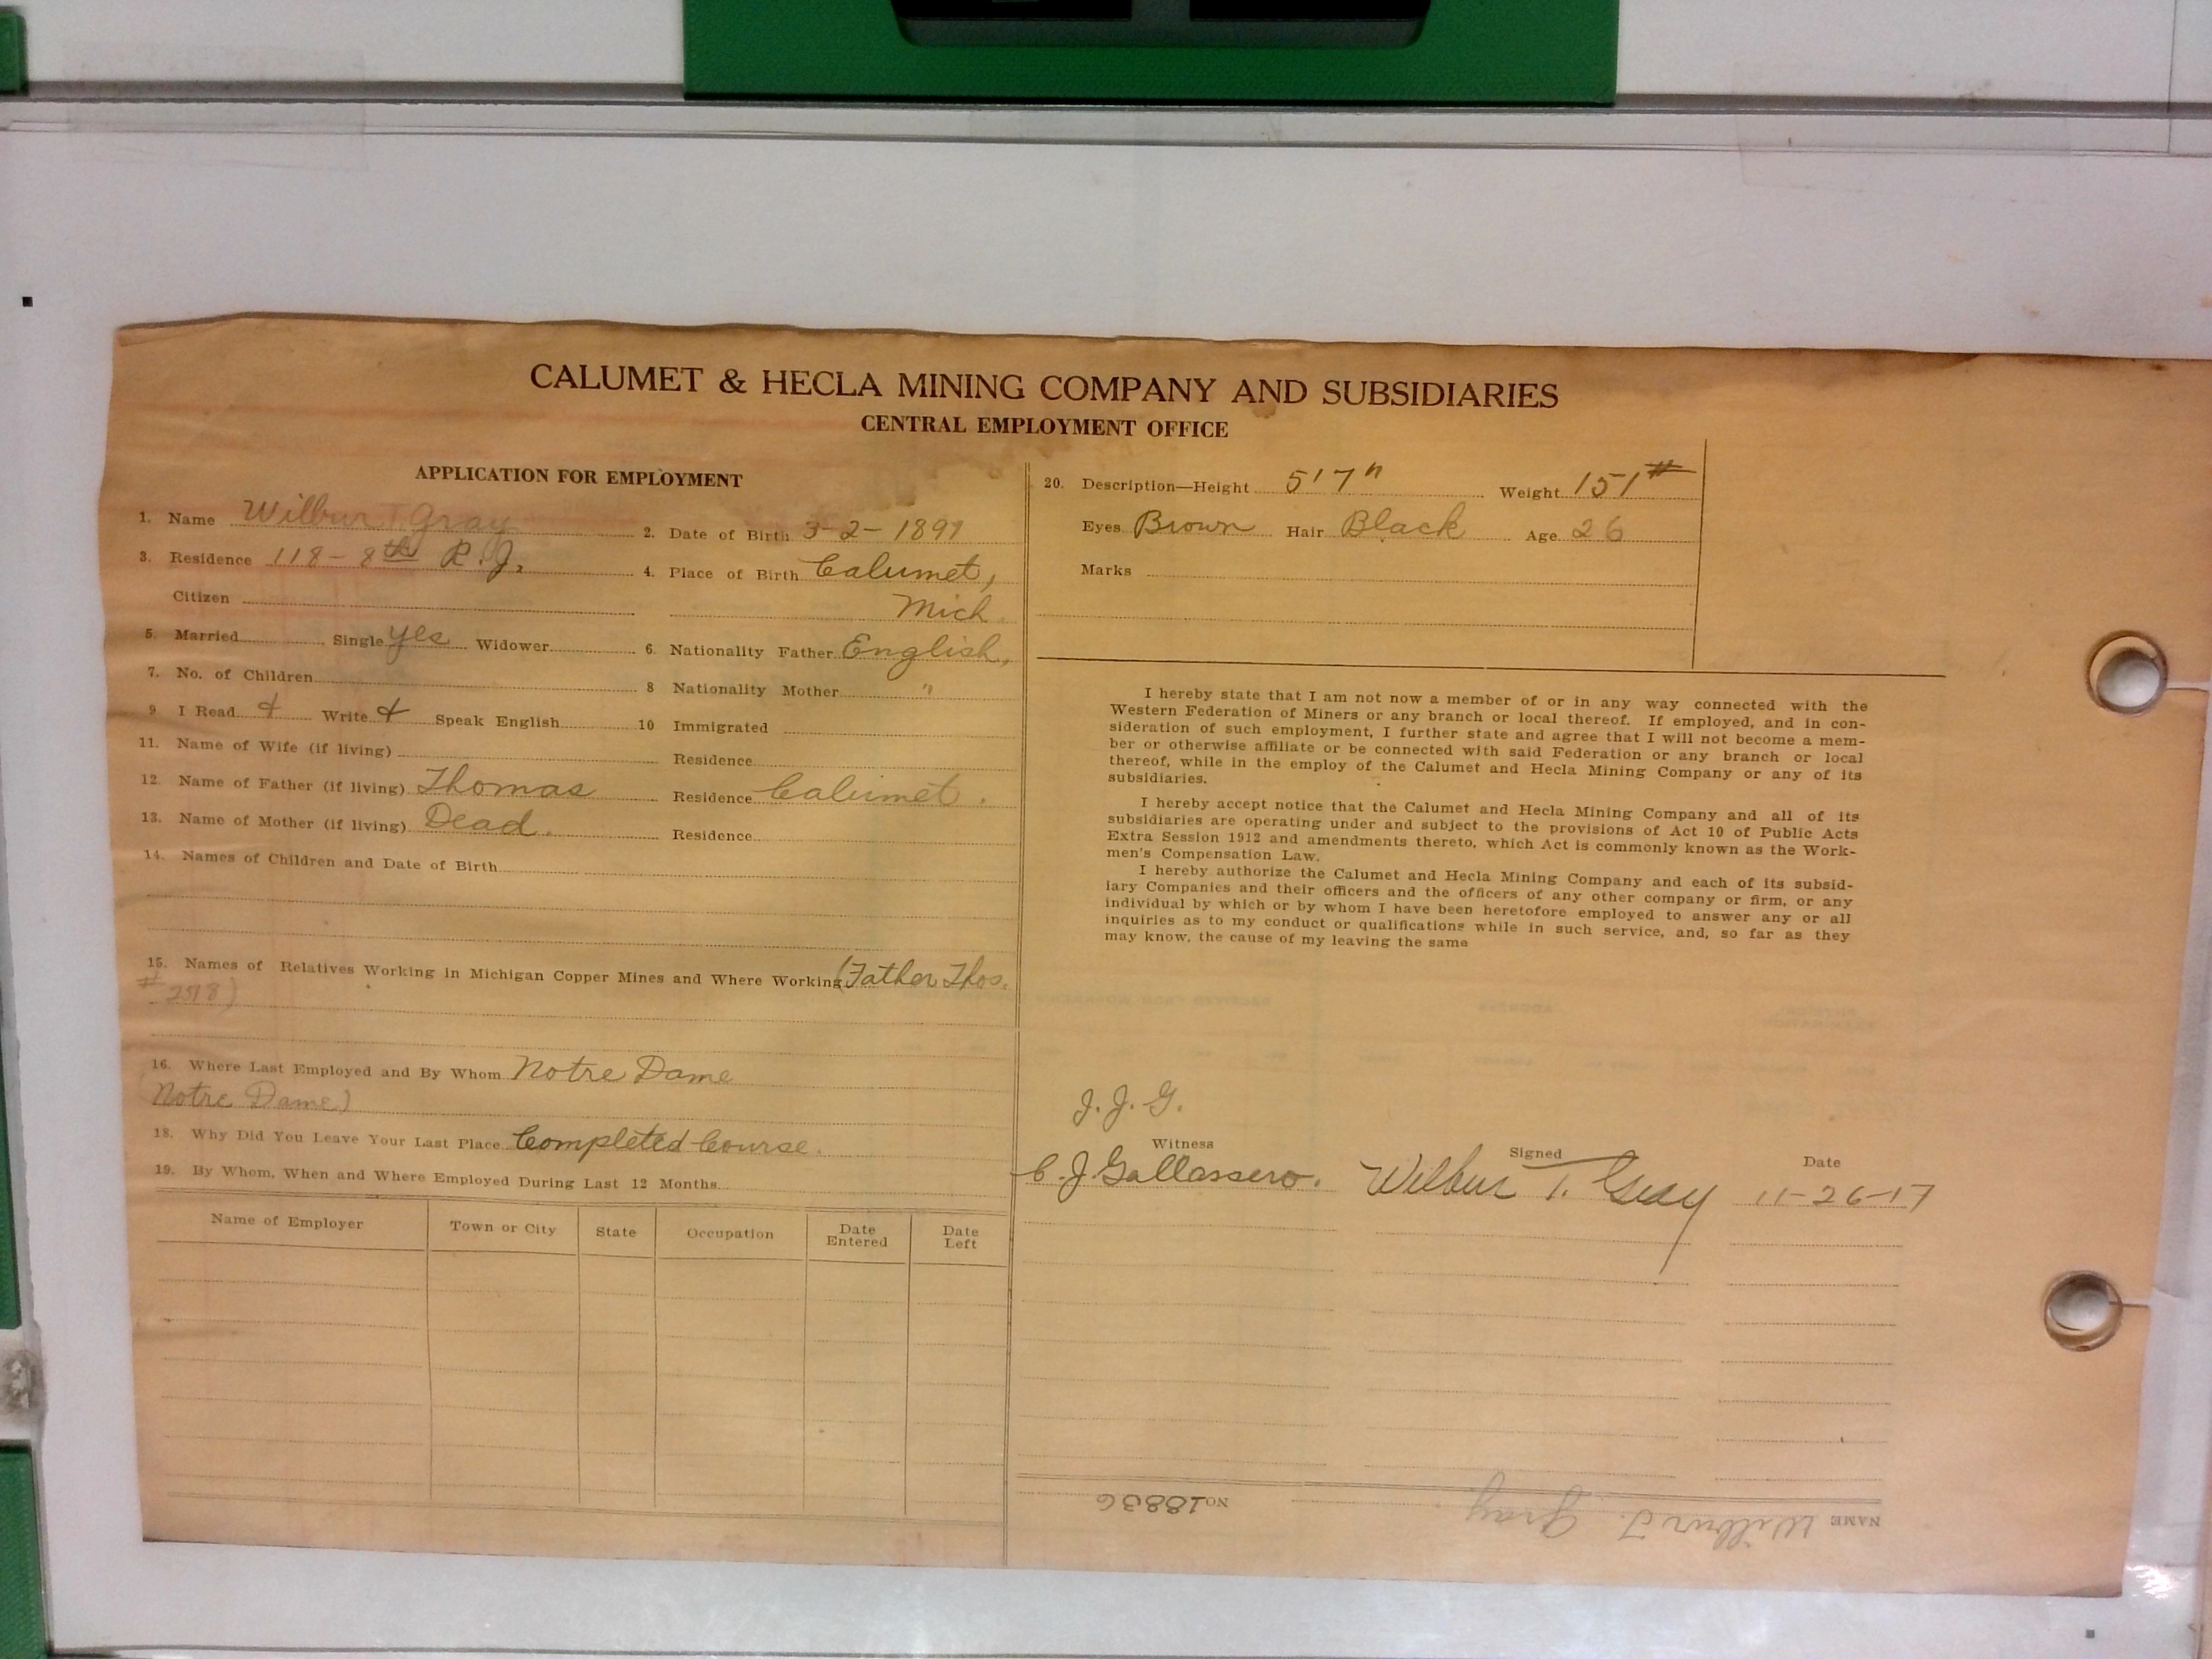 CALUMET & HECLA MINING COMPANY AND SUBSIDIARIES
CENTRAL EMPLOYMENT OFFICE
APPLICATION FOR EMPLOYMENT
1. Name Wilbur T Gray
2. Date of Birth 3-2-1891
3. Residence 118-8th R.J.
4. Place of Birth Calumet,
Citizen
Mich.
5. Married Single yes Widower
6. Nationality Father English,
7. No. of Children
8 Nationality Mother "
9 I Read + Write + Speak English
10 Immigrated
11. Name of Wife (if living)
Residence
12. Name of Father (if living) Thomas
Residence Calumet.
13. Name of Mother (if living) Dead.
Residence
14. Names of Children and Date of Birth
15. Names of Relatives Working in Michigan Copper Mines and Where Working (Father Thos.
16. Where Last Employed and By Whom Notre Dame
Notre Dame)
18. Why Did You Leave Your Last Place Completed Course.
19. By Whom, When and Where Employed During Last 12 Months
Name of Employer Town or City State Occupation Date Entered Date Left
20. Description—Height 5'7" Weight 151#
Eyes Brown Hair Black Age 26
Marks
I hereby state that I am not now a member of or in any way connected with the
Western Federation of Miners or any branch or local thereof. If employed, and in con-
sideration of such employment, I further state and agree that I will not become a mem-
ber or otherwise affiliate or be connected with said Federation or any branch or local
thereof, while in the employ of the Calumet and Hecla Mining Company or any of its
subsidiaries.
I hereby accept notice that the Calumet and Hecla Mining Company and all of its
subsidiaries are operating under and subject to the provisions of Act 10 of Public Acts
Extra Session 1912 and amendments thereto, which Act is commonly known as the Work-
men's Compensation Law.
I hereby authorize the Calumet and Hecla Mining Company and each of its subsid-
iary Companies and their officers and the officers of any other company or firm, or any
individual by which or by whom I have been heretofore employed to answer any or all
inquiries as to my conduct or qualifications while in such service, and, so far as they
may know, the cause of my leaving the same
J. J. G.
Witness Signed Date
C. J. Gallassero. Wilbur T. Gray 11-26-17
NAME Wilbur T. Gray No 18836